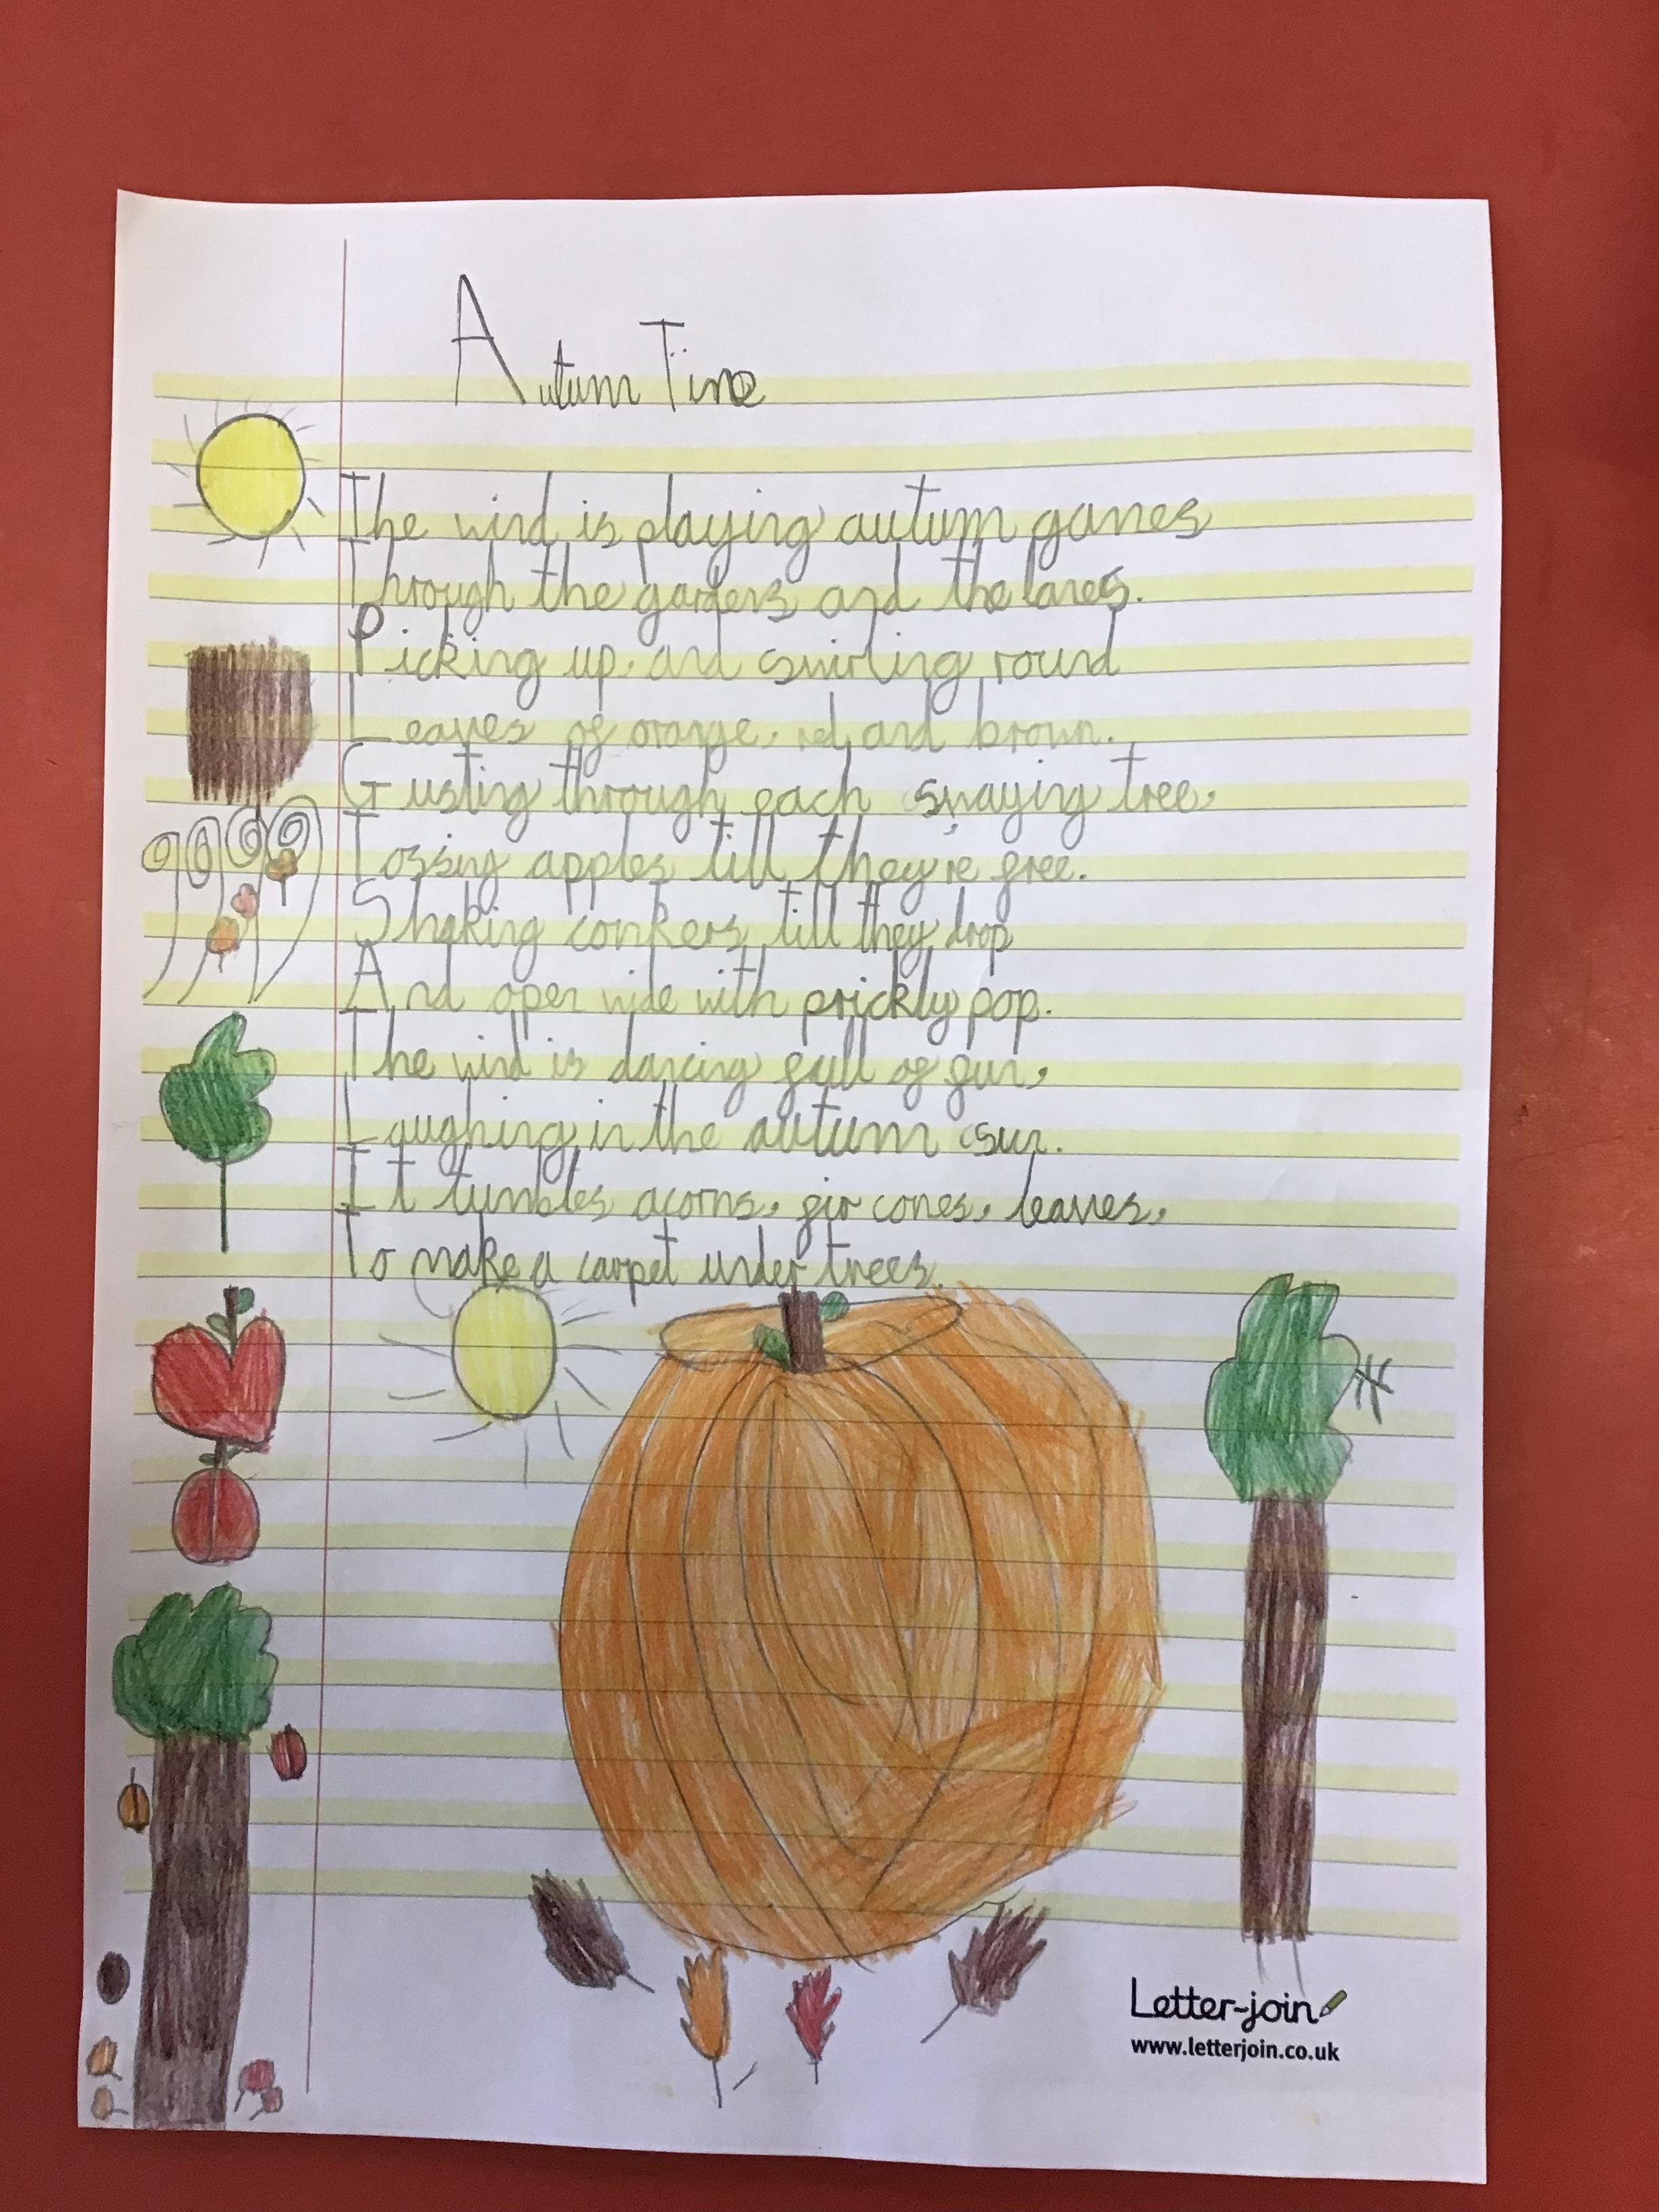 Autum Time
The wind is playing autum games
Through the gardens and the lanes.
Picking up and swirling round
Leaves of orange, red and brown.
Gusting through each swaying tree,
Tossing apples till they're free.
Shaking conkers till they drop
And open wide with prickly pop.
The wind is dancing full of fun,
Laughing in the autum sun.
It tumbles acorns, fir cones, leaves,
To make a carpet under trees.
Letter-join
www.letterjoin.co.uk